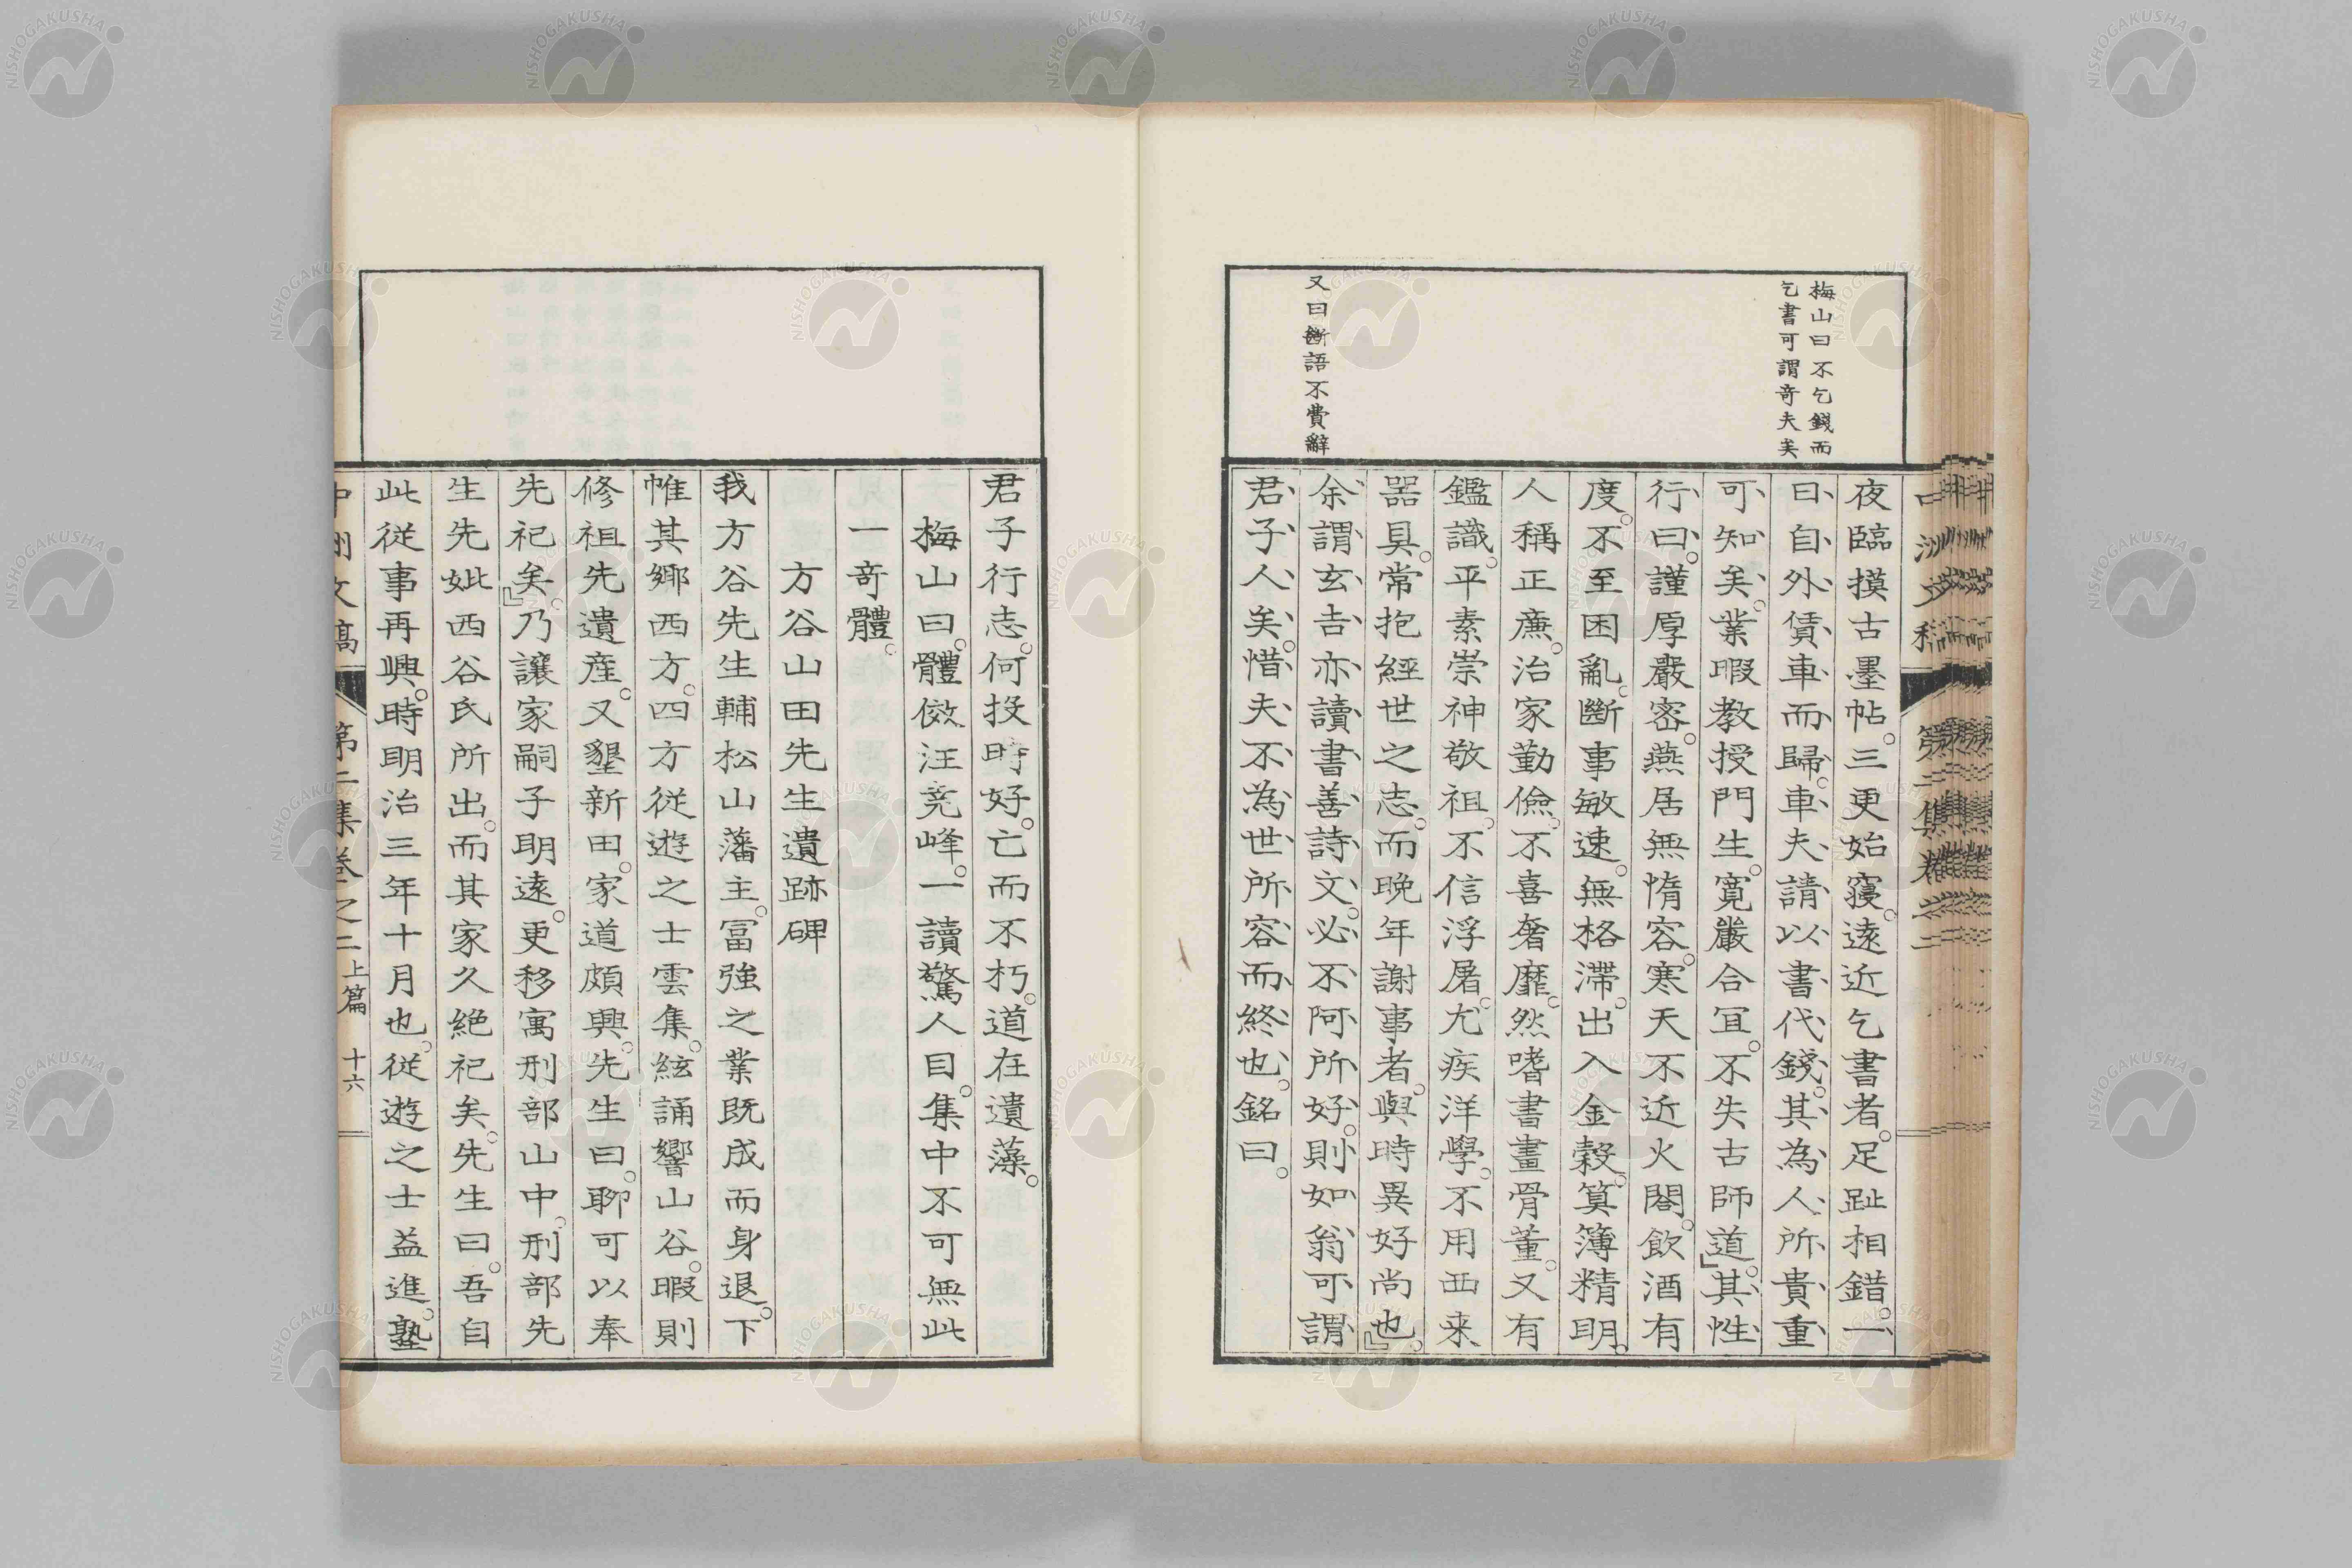 梅山曰不乞錢而
乞書可謂奇夫矣
又曰斷語不費辭
夜臨摸古墨帖。三更始寢。遠近乞書者。足趾相錯。一
曰、自外賃車而歸。車夫請以書代錢。其為人所貴重
可知矣。業暇教授門生。寬嚴合宜。不失古師道。』其性
行曰。謹厚嚴密。燕居無惰容。寒天不近火閤。飲酒有
度。不至困亂。斷事敏速。無格滯。出入金穀。算簿精明。
人稱正廉。治家勤儉。不喜奢靡。然嗜書畫骨董。又有
鑑識。平素崇神敬祖。不信浮屠。尤疾洋學。不用西来
器具。常抱經世之志。而晩年謝事者。與時異好尚也。』
余謂玄𠮷亦讀書善詩文。必不阿所好。則如翁可謂
君子人矣。惜夫不為世所容而終也。銘曰。
君子行志。何投時好。亡而不朽。道在遺藻。
梅山曰。體倣汪尭峰。一讀驚人目。集中不可無此
一奇體。
方谷山田先生遺跡碑
我方谷先生輔松山藩主。冨強之業既成而身退。下
帷其郷西方。四方従遊之士雲集。絃誦響山谷。暇則
修祖先遺産。又墾新田。家道頗興。先生曰。聊可以奉
先祀矣。』乃讓家嗣子明遠。更移寓刑部山中。刑部先
生先妣西谷氏所出。而其家久絶祀矣。先生曰。吾自
此従事再興。時明治三年十月也。従遊之士益進。塾
中洲文稿 第二集卷之二上篇 十六